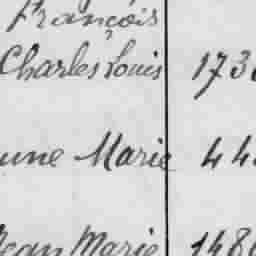 François
Charles Louis 173
une Marie 44
Jean Marie 148